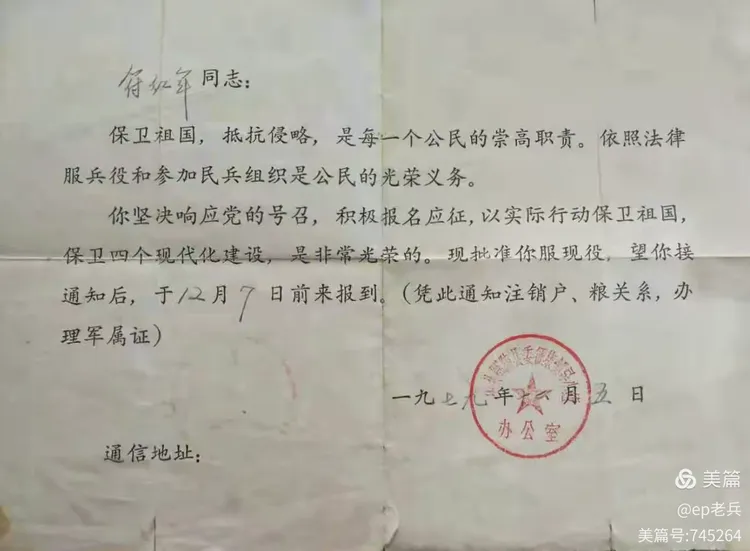 符红年同志：
保卫祖国，抵抗侵略，是每一个公民的崇高职责。依照法律
服兵役和参加民兵组织是公民的光荣义务。
你坚决响应党的号召，积极报名应征，以实际行动保卫祖国，
保卫四个现代化建设，是非常光荣的。现批准你服现役，望你接
通知后，于12月7日前来报到。（凭此通知注销户、粮关系，办
理军属证）
一九七九年十二月五日
办公室
通信地址：
美篇
@ep老兵
美篇号:745264